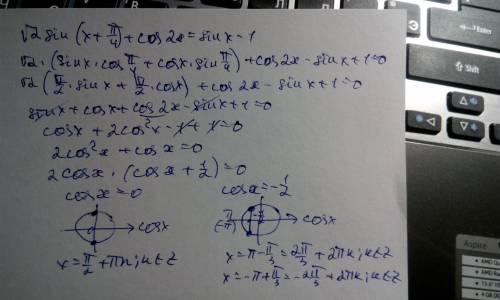 √2 sin(x + π/4) + cos2x = sinx - 1
√2 · (sinx · cos π/4 + cosx · sin π/4) + cos2x - sinx + 1 = 0
√2 (√2/2 · sinx + √2/2 · cosx) + cos2x - sinx + 1 = 0
sinx + cosx + cos2x - sinx + 1 = 0
cosx + 2cos²x - 1 + 1 = 0
2cos²x + cosx = 0
2cosx · (cosx + 1/2) = 0
cosx = 0
cosx = -1/2
cosx
cosx
x = π/2 + πn; n∈Z
x = π - π/3 = 2π/3 + 2πn; n∈Z
x = -π + π/3 = -2π/3 + 2πn; n∈Z
Shift
Aspire